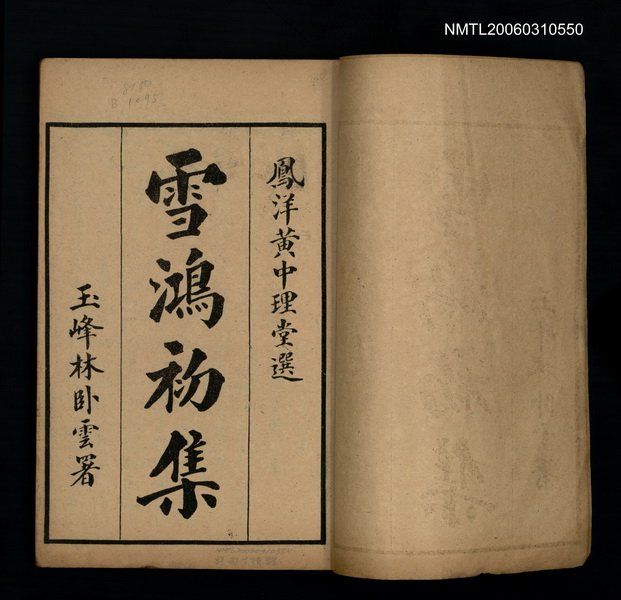 NMTL20060310550
鳳洋黃中理堂選
雪鴻初集
玉峰林卧雲署